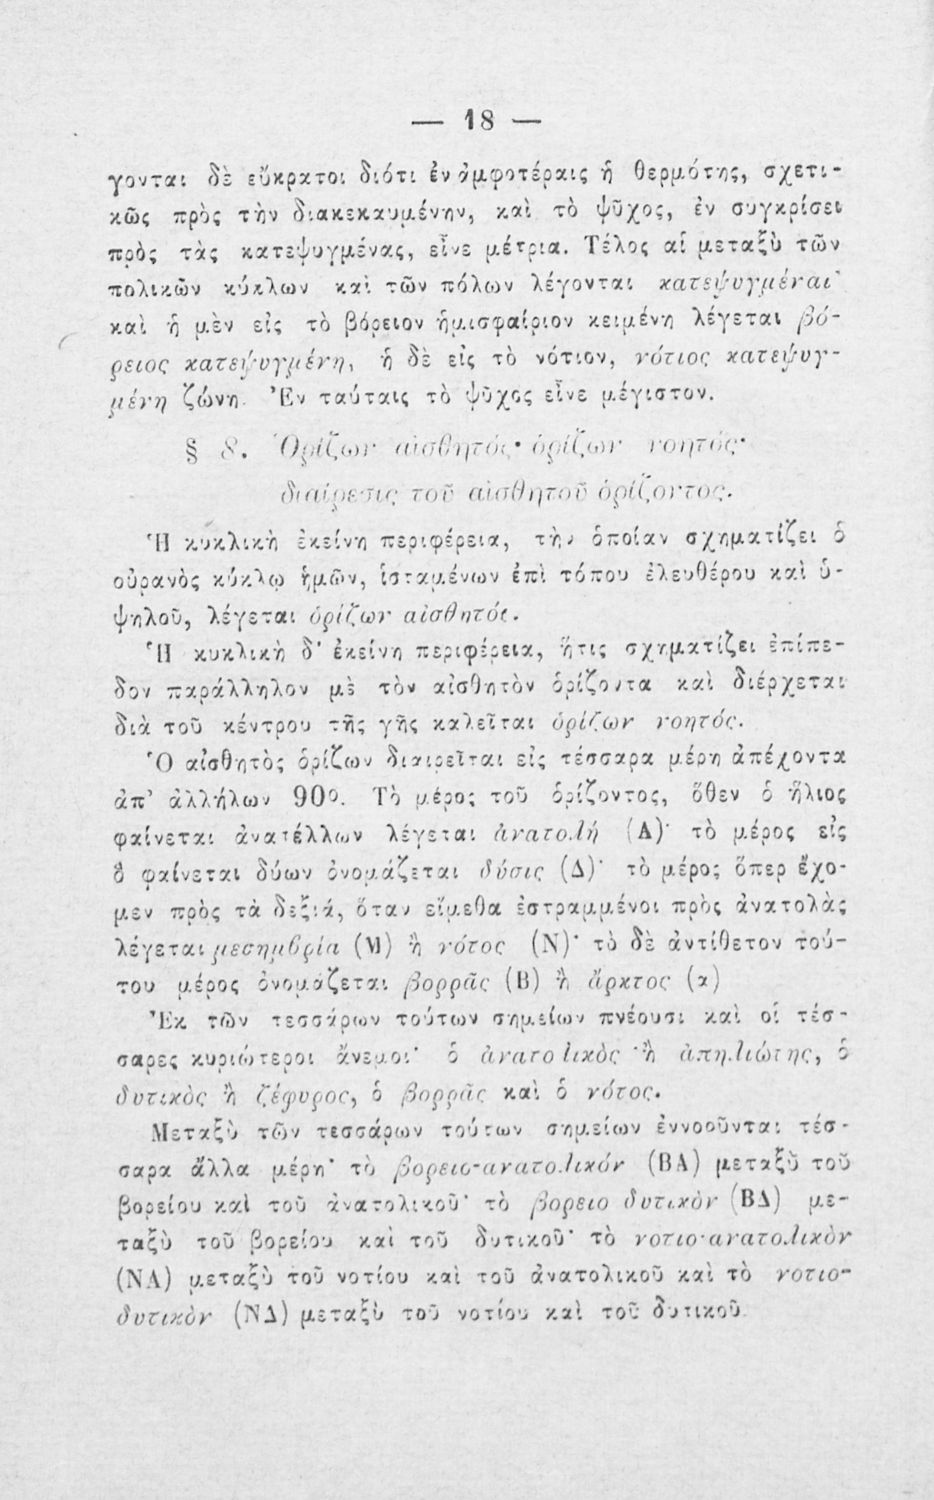 — 18 —
γονται δὲ εὔκρατοι διότι ἐν ἀμφοτέραις ἡ θερμότης, σχετι-
κῶς πρὸς τὴν διακεκαυμένην, καὶ τὸ ψῦχος, ἐν συγκρίσει
πρὸς τὰς κατεψυγμένας, εἶνε μέτρια. Τέλος αἱ μεταξὺ τῶν
πολικῶν κύκλων καὶ τῶν πόλων λέγονται κατεψυγμέναι·
καὶ ἡ μὲν εἰς τὸ βόρειον ἡμισφαίριον κειμένη λέγεται βό-
ρειος κατεψυγμένη, ἡ δὲ εἰς τὸ νότιον, νότιος κατεψυγ-
μένη ζώνη. Ἐν ταύταις τὸ ψῦχος εἶνε μέγιστον.
§ 8. Ὁρίζων αἰσθητός· ὁρίζων νοητός·
διαίρεσις τοῦ αἰσθητοῦ ὁρίζοντος.
Ἡ κυκλικὴ ἐκείνη περιφέρεια, τὴν ὁποίαν σχηματίζει ὁ
οὐρανὸς κύκλῳ ἡμῶν, ἱσταμένων ἐπὶ τόπου ἐλευθέρου καὶ ὑ-
ψηλοῦ, λέγεται ὁρίζων αἰσθητός.
Ἡ κυκλικὴ δ' ἐκείνη περιφέρεια, ἥτις σχηματίζει ἐπίπε-
δον παράλληλον μὲ τὸν αἰσθητὸν ὁρίζοντα καὶ διέρχεται
διὰ τοῦ κέντρου τῆς γῆς καλεῖται ὁρίζων νοητός.
Ὁ αἰσθητὸς ὁρίζων διαιρεῖται εἰς τέσσαρα μέρη ἀπέχοντα
ἀπ' ἀλλήλων 90°. Τὸ μέρος τοῦ ὁρίζοντος, ὅθεν ὁ ἥλιος
φαίνεται ἀνατέλλων λέγεται ἀνατολή (Α)· τὸ μέρος εἰς
ὃ φαίνεται δύων ὀνομάζεται δύσις (Δ)· τὸ μέρος ὅπερ ἔχο-
μεν πρὸς τὰ δεξιά, ὅταν εἴμεθα ἐστραμμένοι πρὸς ἀνατολὰς
λέγεται μεσημβρία (Μ) ἢ νότος (Ν)· τὸ δὲ ἀντίθετον τού-
του μέρος ὀνομάζεται βορρᾶς (Β) ἢ ἄρκτος (α)
Ἐκ τῶν τεσσάρων τούτων σημείων πνέουσι καὶ οἱ τέσ-
σαρες κυριώτεροι ἄνεμοι· ὁ ἀνατολικὸς ἢ ἀπηλιώτης, ὁ
δυτικὸς ἢ ζέφυρος, ὁ βορρᾶς καὶ ὁ νότος.
Μεταξὺ τῶν τεσσάρων τούτων σημείων ἐννοοῦνται τέσ-
σαρα ἄλλα μέρη· τὸ βορειο-ανατολικόν (ΒΑ) μεταξὺ τοῦ
βορείου καὶ τοῦ ἀνατολικοῦ· τὸ βορειο δυτικὸν (ΒΔ) με-
ταξὺ τοῦ βορείου καὶ τοῦ δυτικοῦ· τὸ νοτιο-ανατολικὸν
(ΝΑ) μεταξὺ τοῦ νοτίου καὶ τοῦ ἀνατολικοῦ καὶ τὸ νοτιο-
δυτικὸν (ΝΔ) μεταξὺ τοῦ νοτίου καὶ τοῦ δυτικοῦ.